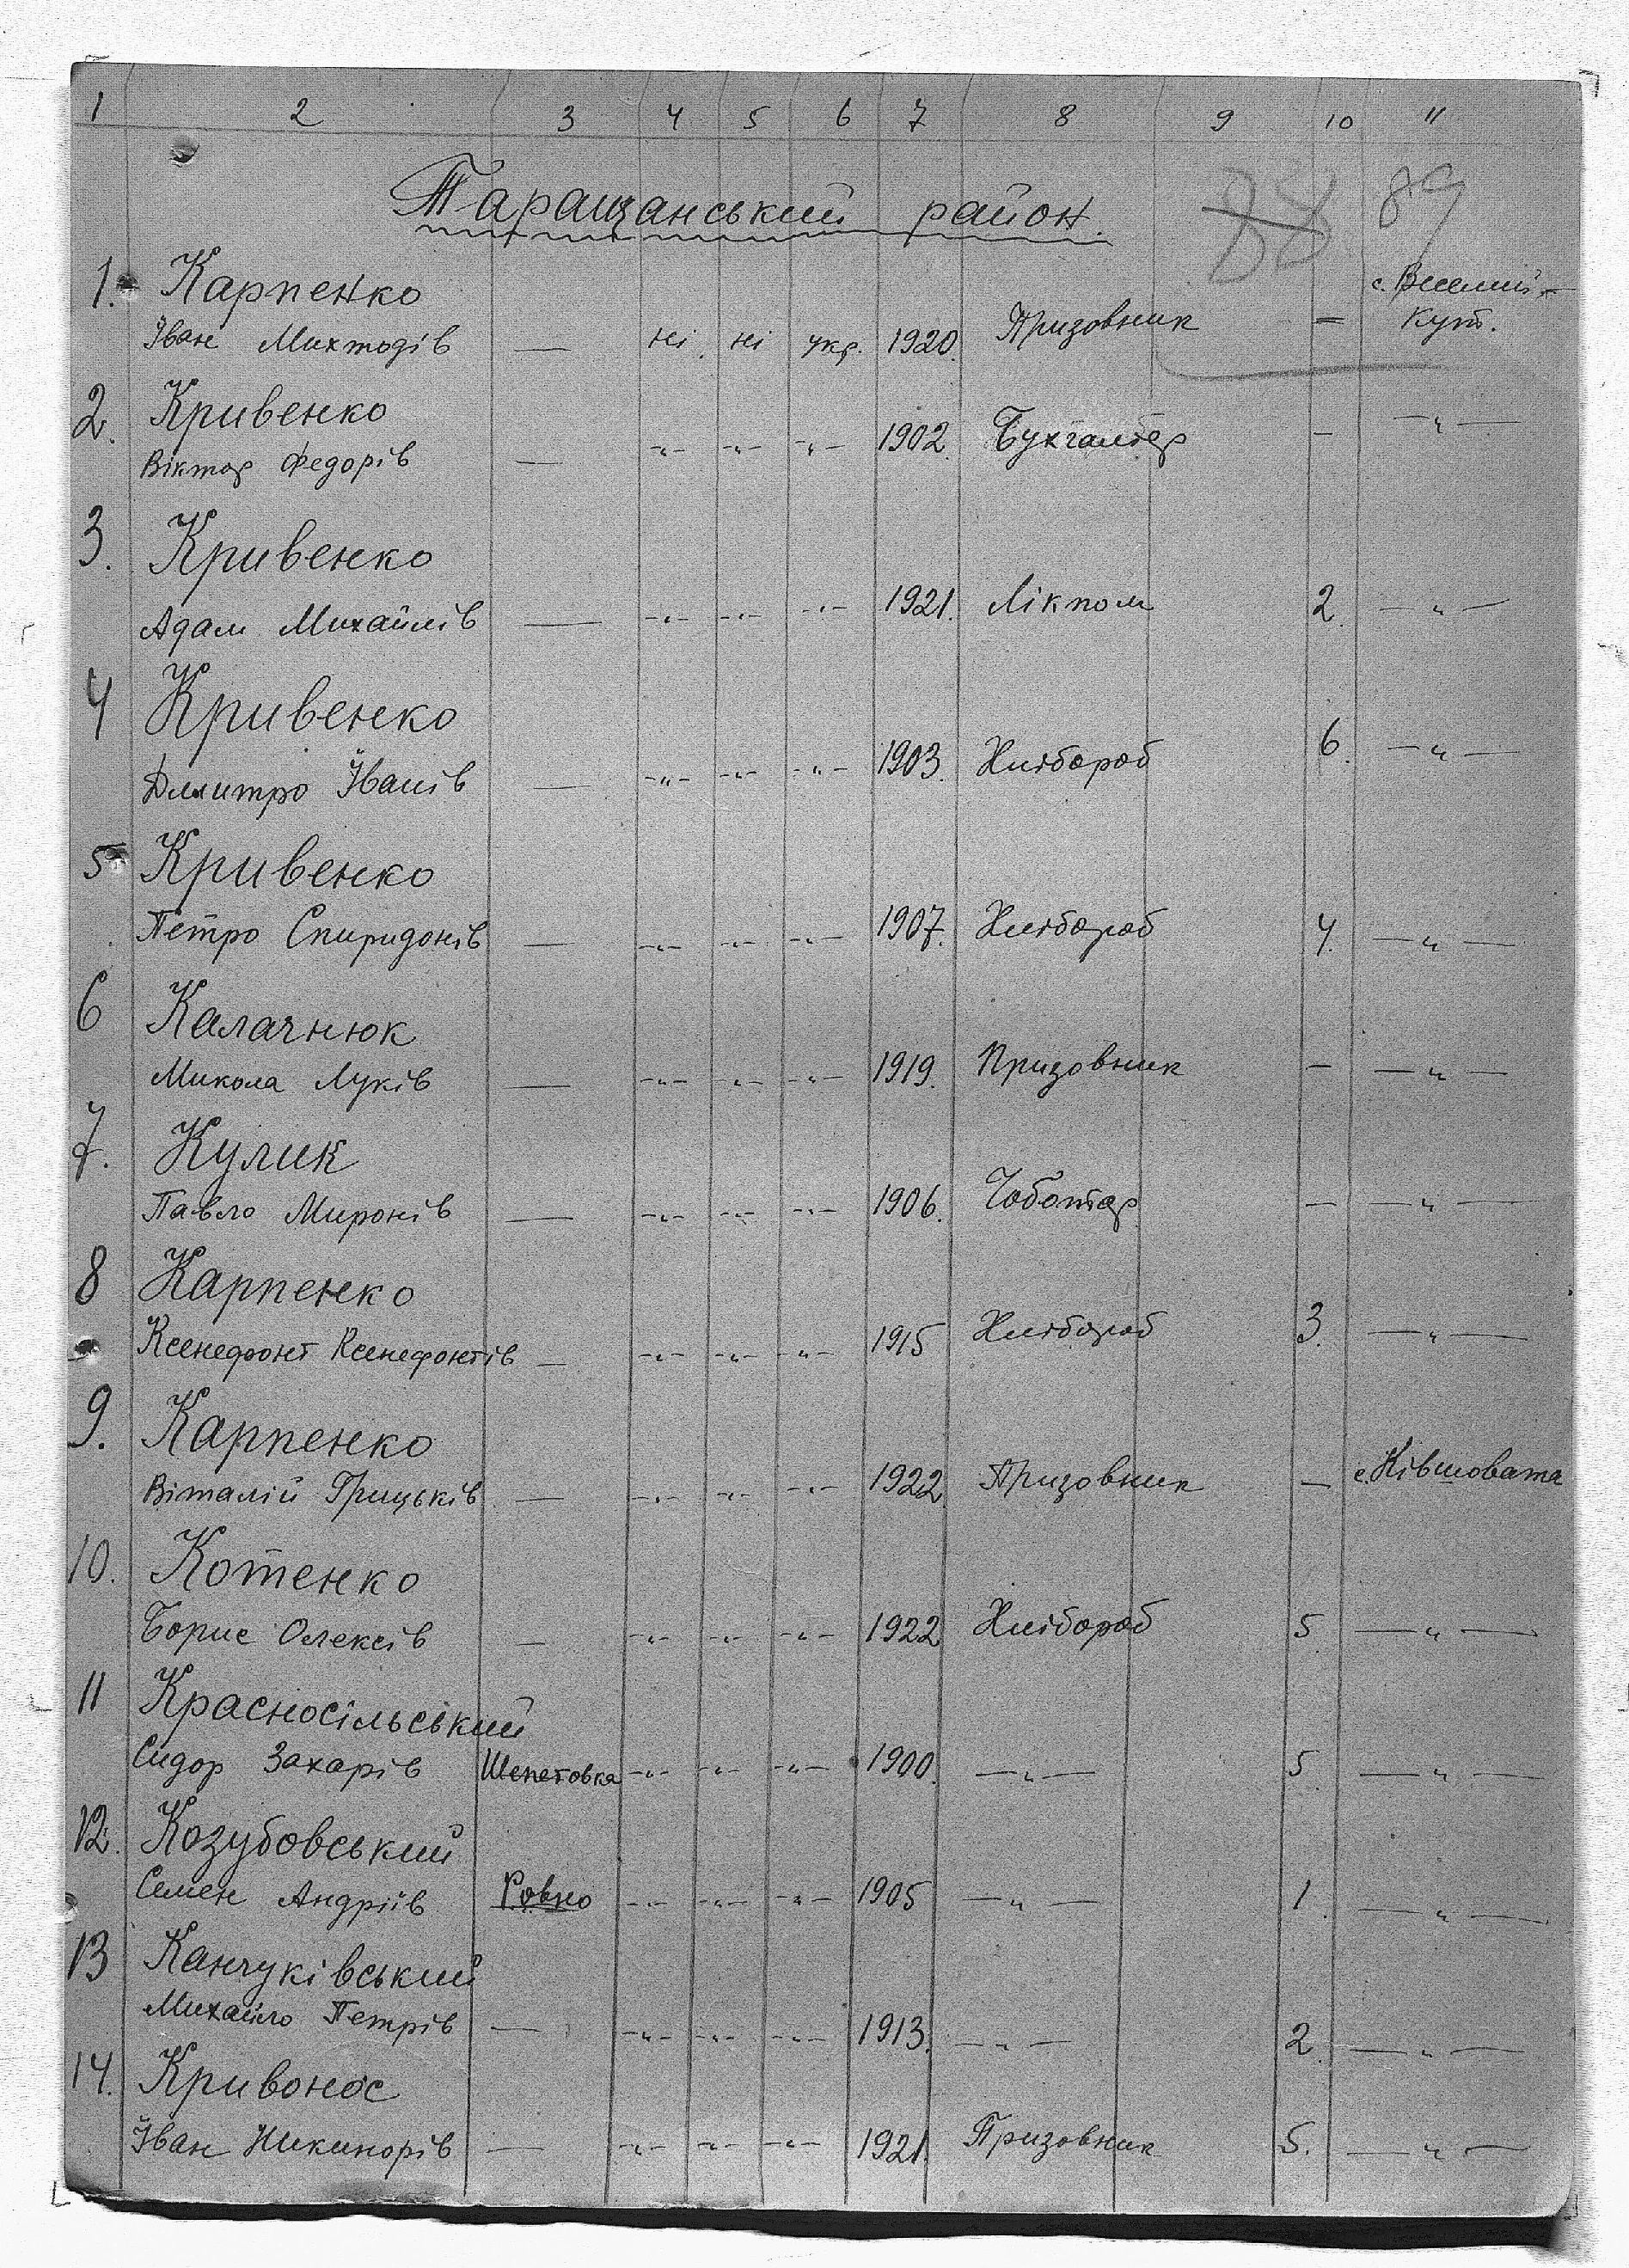 1 2 3 4 5 6 7 8 9 10 11
Таращанський район.
88 89
1. Карпенко с. Веселий-
Іван Михтодів — ні ні укр. 1920. Призовник — Кут.
2. Кривенко
Віктор Федорів — -"- -"- -"- 1902. Бухгалтер — —"—
3. Кривенко
Адам Михайлів — -"- -"- -"- 1921. Лікпом 2. —"—
4 Кривенко
Дмитро Іванів — -"- -"- -"- 1903. Хлібороб 6. —"—
5 Кривенко
Петро Спиридонів — -"- -"- -"- 1907. Хлібороб 4. —"—
6 Калачнюк
Микола Луків — -"- -"- -"- 1919. Призовник — —"—
7. Кулик
Павло Миронів — -"- -"- -"- 1906. Чоботар — —"—
8 Карпенко
Ксенефонт Ксенефонтів — -"- -"- -"- 1915 Хлібороб 3. —"—
9. Карпенко
Віталій Грицьків — -"- -"- -"- 1922 Призовник — с. Ківшовата
10. Котенко
Борис Олексів — -"- -"- -"- 1922 Хлібороб 5 —"—
11 Красносільський
Сидор Захарів Шепетовка -"- -"- -"- 1900. —"— 5. —"—
12. Козубовський
Семен Андріїв Ровно -"- -"- -"- 1905 —"— 1. —"—
13 Канчуківський
Михайло Петрів — -"- -"- -"- 1913. —"— 2. —"—
14. Кривонос
Іван Никинорів — -"- -"- -"- 1921. Призовник 5. —"—